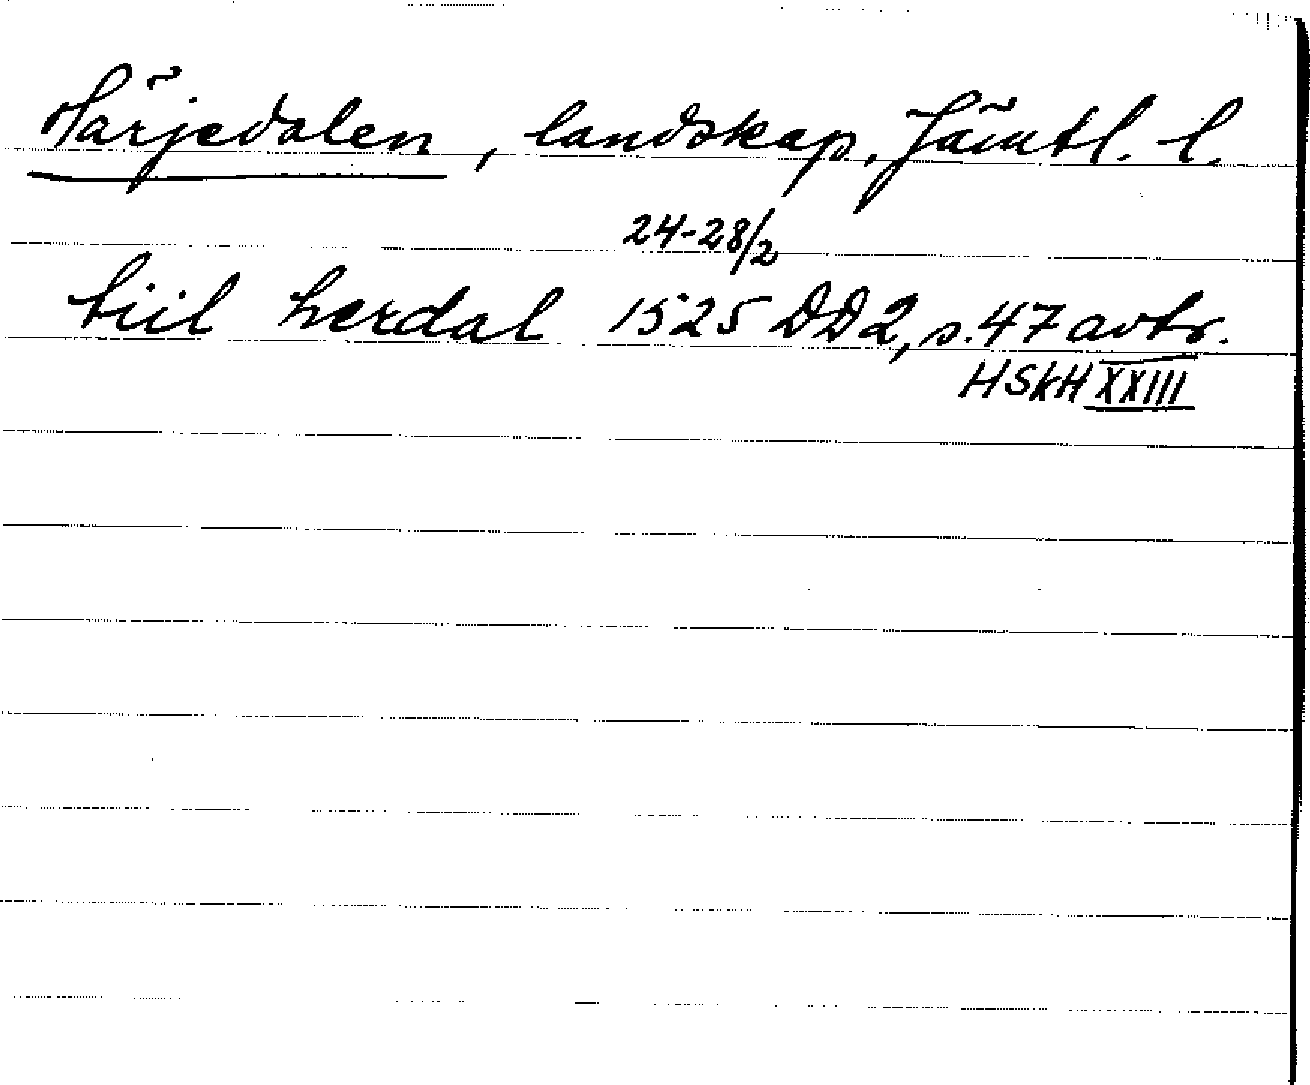 Härjedalen, landskap, Jämtl. l.
24-28/2
tiil herdal 1525 DD2, s. 47 avtr.
HSkH XXIII